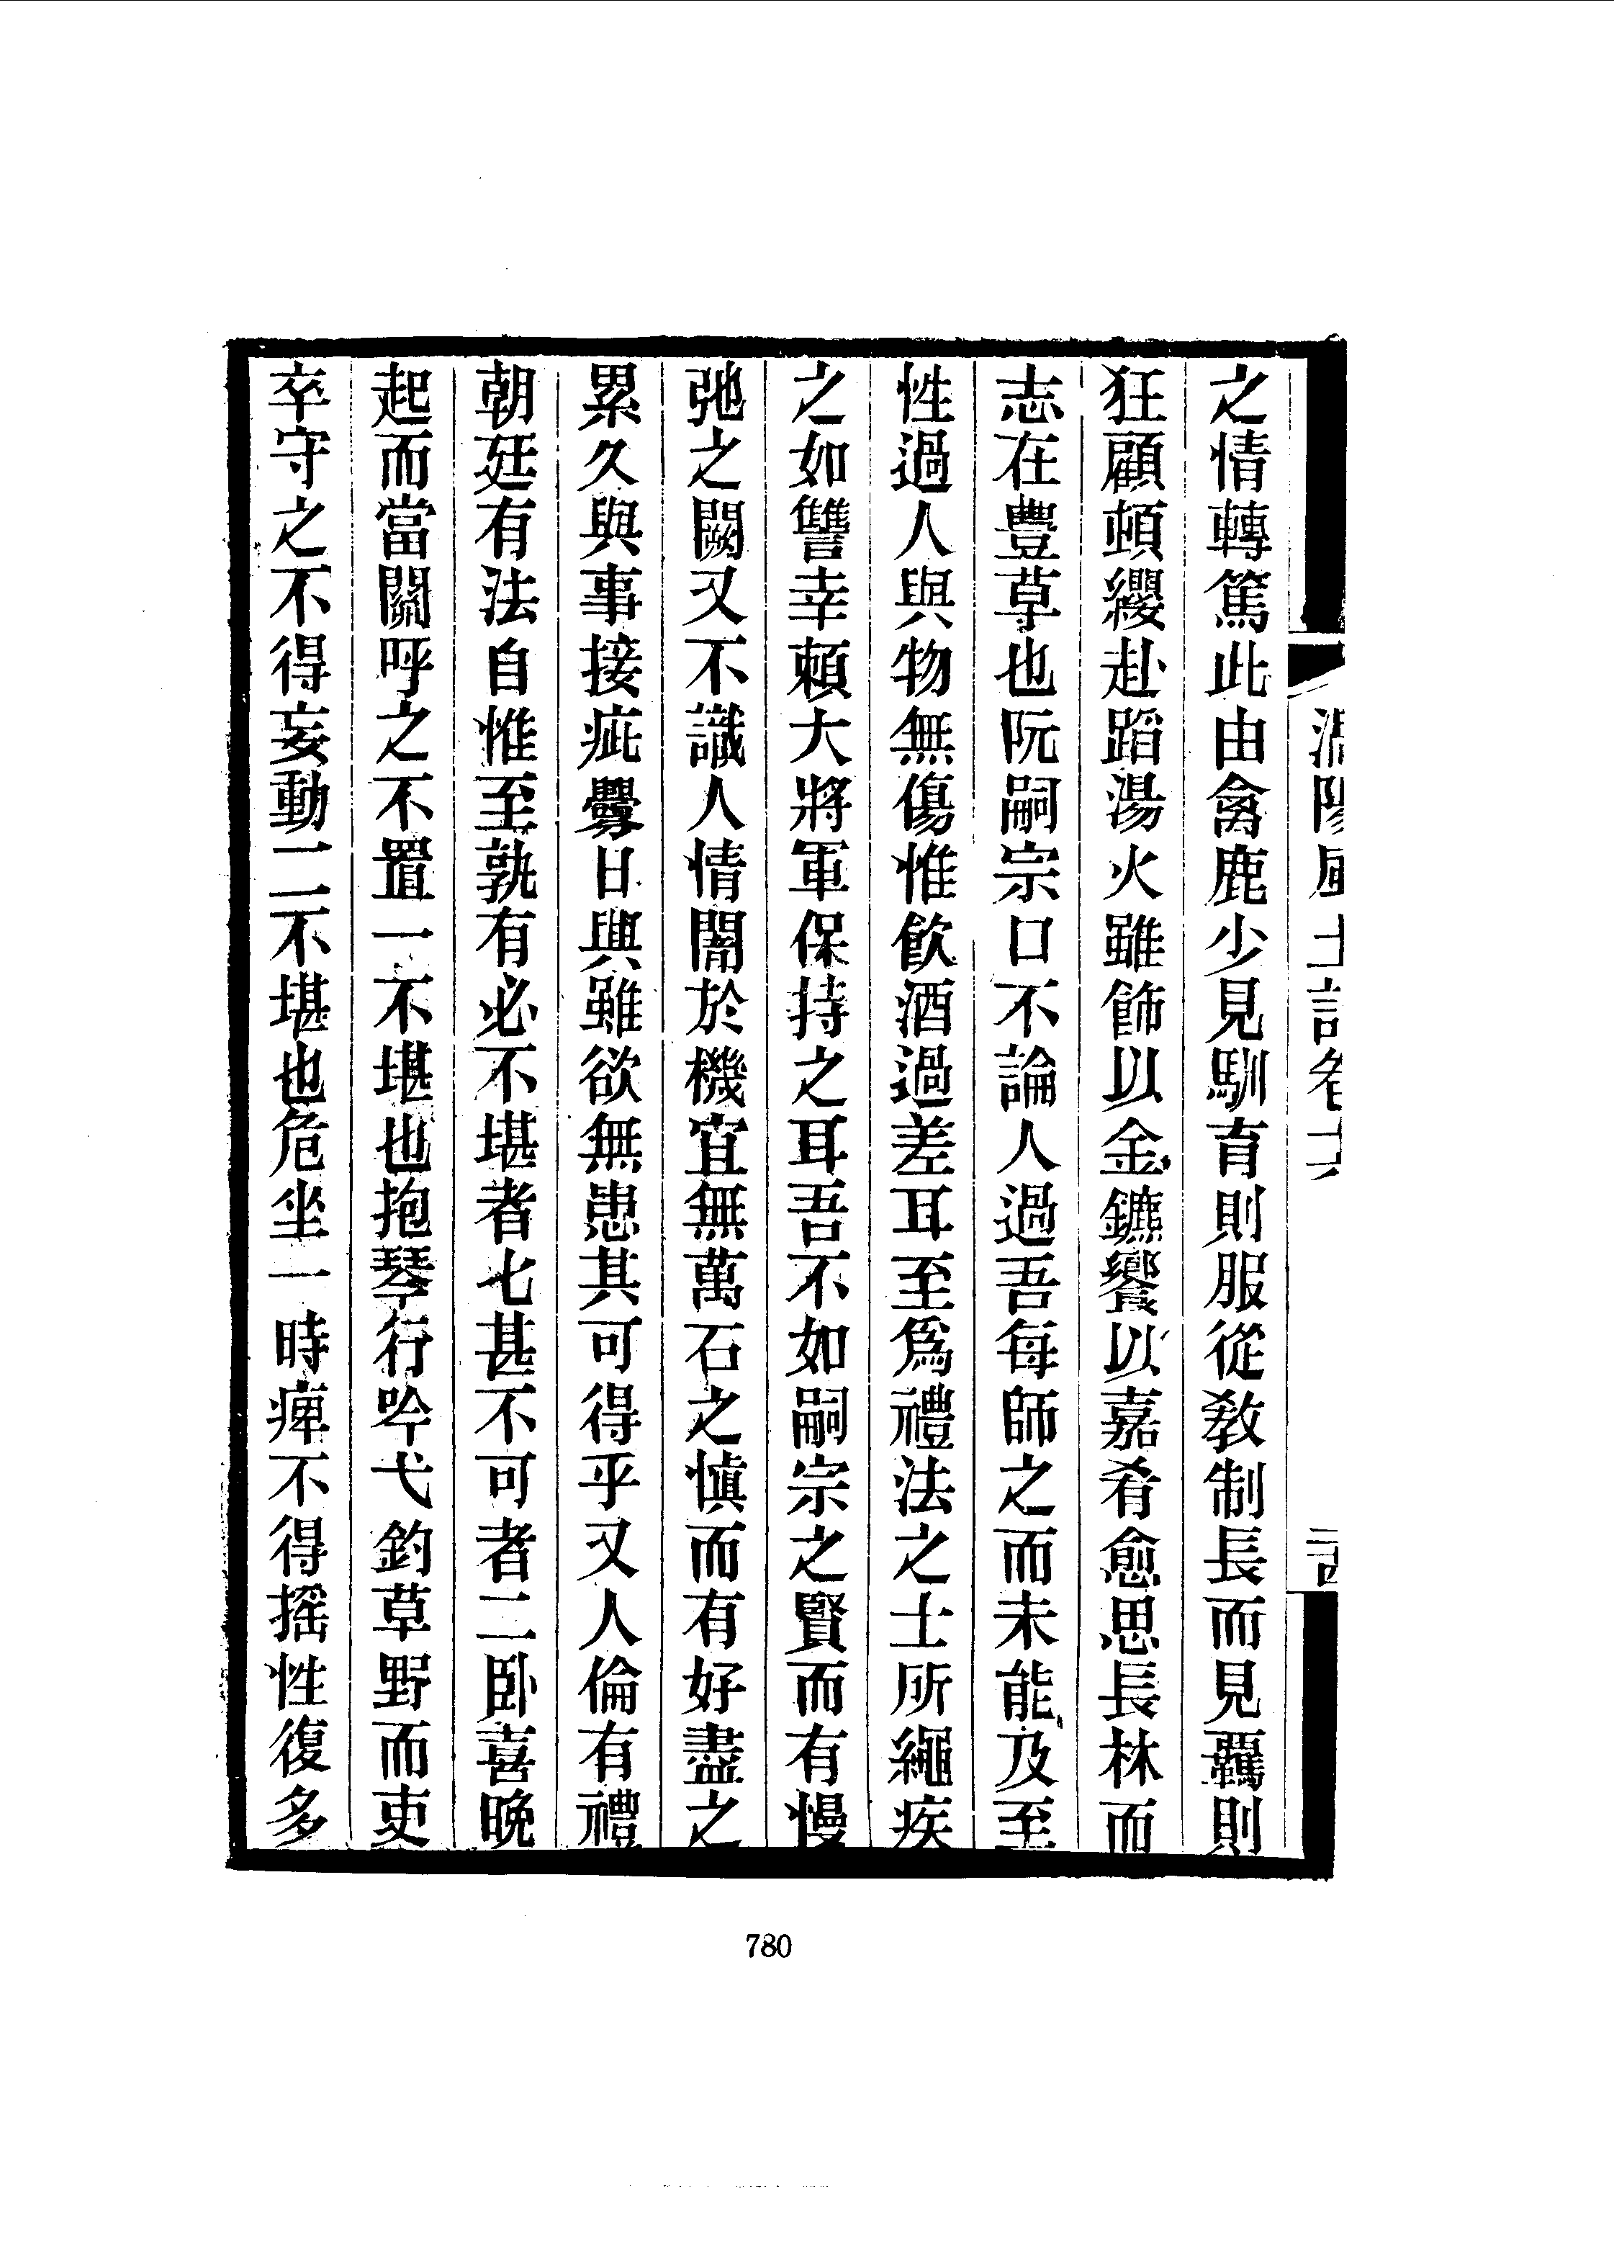 之情轉篤此由禽鹿少見馴育則服從敎制長而見羈則
狂顧頓纓赴蹈湯火雖飾以金鑣饗以嘉肴愈思長林而
志在豐草也阮嗣宗口不論人過吾每師之而未能及至
性過人與物無傷惟飮酒過差耳至爲禮法之士所繩疾
之如讐幸頼大將軍保持之耳吾不如嗣宗之賢而有慢
弛之闕又不識人情闇於機宜無萬石之愼而有好盡之
累久與事接疵釁日興雖欲無患其可得乎又人倫有禮
朝廷有法自惟至孰有必不堪者七甚不可者二卧喜晚
起而當關呼之不置一不堪也抱琴行吟弋釣草野而吏
卒守之不得妄動二不堪也危坐一時痺不得摇性復多
780